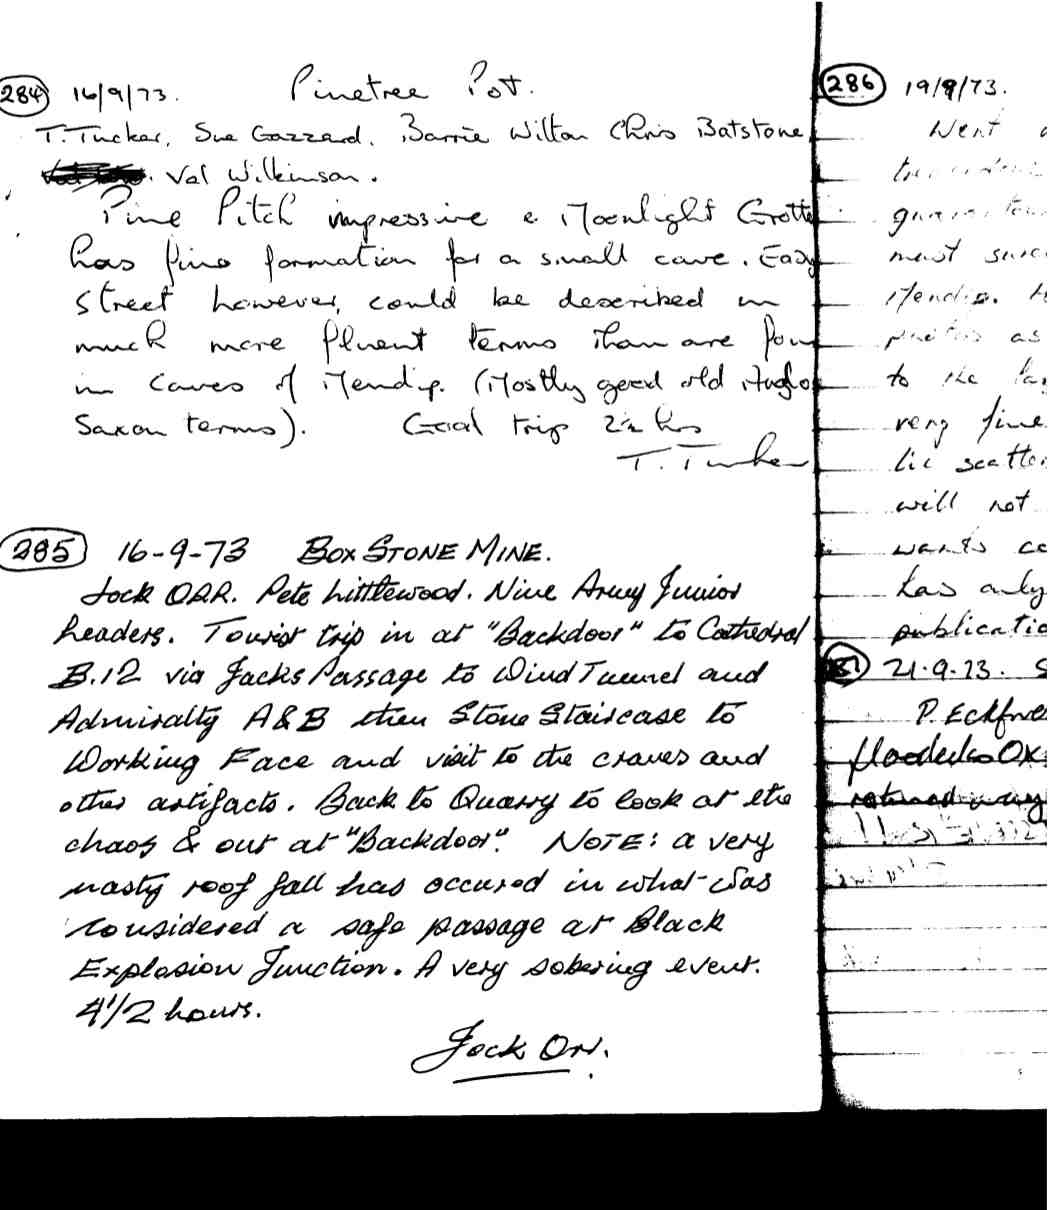 284 16/9/73. Pinetree Pot.
T. Tucker, Sue Gazzard, Barrie Wilton Chris Batstone
Val Wilkinson.
Pine Pitch impressive & Moonlight Grotto
has fine formation for a small cave. Easy
Street however, could be described in
much more fluent terms than are foun
in Caves of Mendip. (Mostly good old Anglo
Saxon terms). Good trip 2½ hrs
T. Tucker
285 16-9-73 BOX STONE MINE.
Jock ORR. Pete Littlewood. Nine Army Junior
Leaders. Tourist trip in at "Backdoor" to Cathedral
B.12 via Jacks Passage to Wind Tunnel and
Admiralty A & B then Stone Staircase to
Working Face and visit to the cranes and
other artifacts. Back to Quarry to look at the
chaos & out at "Backdoor". NOTE: a very
nasty roof fall has occured in what was
considered a safe passage at Black
Explosion Junction. A very sobering event.
4½ hours.
Jock Orr.
286 19/9/73.
Went
must
Mendip.
as
to the
very fine
scatter
will not
wants
has only
publicatio
21-9-73. S
P. Eckf
returned